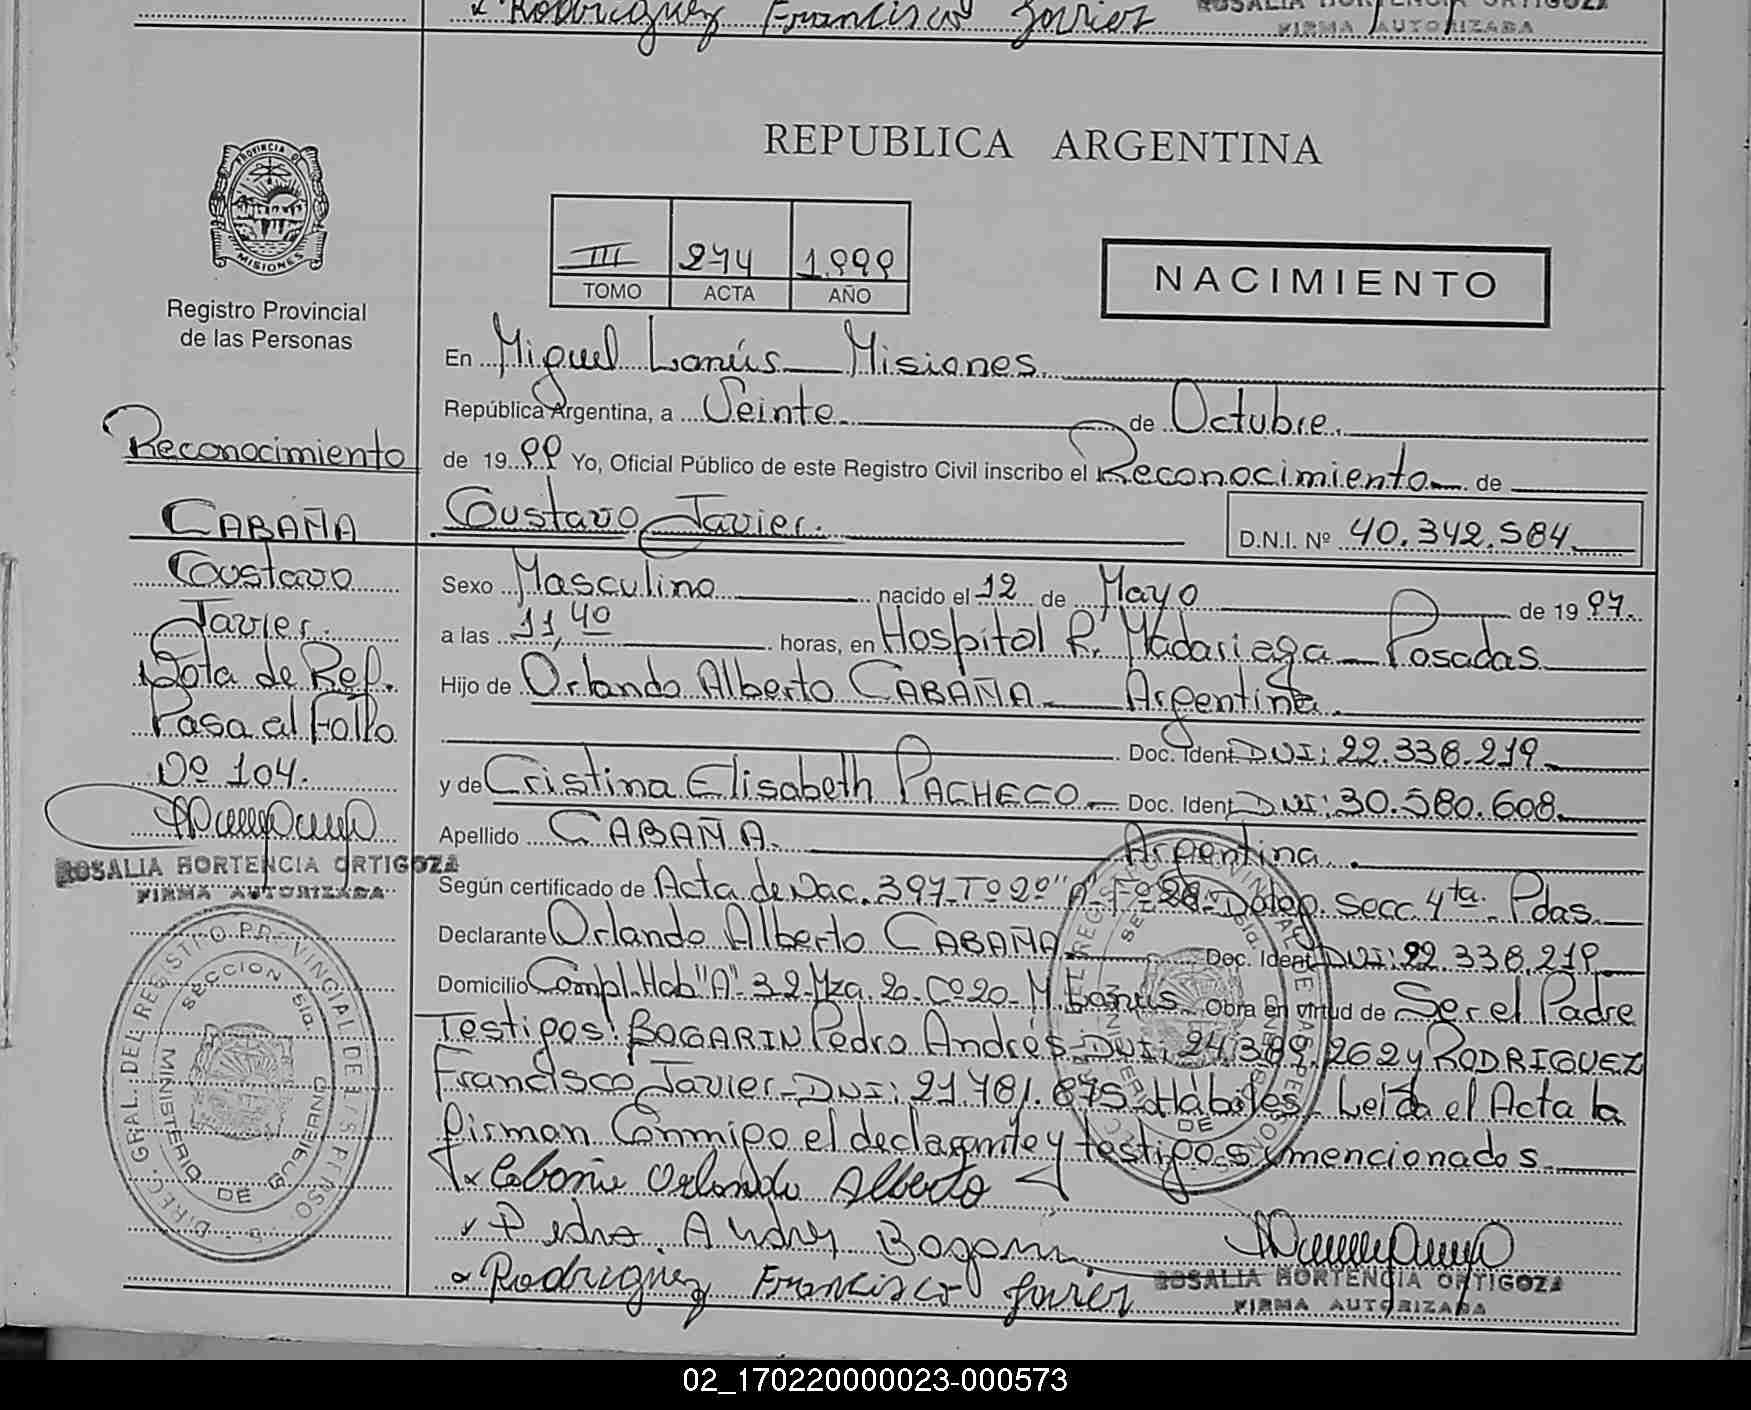 Rodriguez Francisco Javier
ROSALIA HORTENCIA ORTIGOZA
FIRMA AUTORIZADA
REPUBLICA ARGENTINA
PROVINCIA DE
MISIONES
Registro Provincial
de las Personas
III 274 1.999
TOMO ACTA AÑO
NACIMIENTO
En Miguel Lanús Misiones
República Argentina, a Veinte de Octubre.
de 19 99 Yo, Oficial Público de este Registro Civil inscribo el Reconocimiento de
Gustavo Javier.
D.N.I. Nº 40.342.584
Sexo Masculino nacido el 12 de Mayo de 19 97.
a las 11,40 horas, en Hospital R. Madariaga Posadas
Hijo de Orlando Alberto CABAÑA Argentina.
Doc. Ident. DNI: 22.336.219
y de Cristina Elisabeth PACHECO Doc. Ident DNI: 30.580.608
Apellido CABAÑA. Argentina.
Según certificado de Acta de Nac. 397-Tº 2º "A"-Fº Secc 4ta. Pdas.
Declarante Orlando Alberto CABAÑA Doc. Ident DNI: 22.336.219
Domicilio Compl. Hab "A" 32-Mza. 20-Cº20-M. Lanús Obra en virtud de Ser el Padre
Testigos: BOGARIN Pedro Andrés-DNI: 24.389.262 y RODRIGUEZ
Francisco Javier-DNI: 21.781.875-Hábiles. Leída el Acta la
firman Conmigo el declarante y testigos mencionados
x Cabaña Orlando Alberto
x Pedro Andres Bogarin
x Rodriguez Francisco Javier
ROSALIA HORTENCIA ORTIGOZA
FIRMA AUTORIZADA
Reconocimiento
CABAÑA
Gustavo
Javier.
Nota de Ref.
Pasa al Folio
Nº 104.
ROSALIA HORTENCIA ORTIGOZA
FIRMA AUTORIZADA
DIREC. GRAL. DEL REGISTRO PROVINCIAL DE LAS PERSO
SECCION 5ta.
MINISTERIO DE
02_170220000023-000573